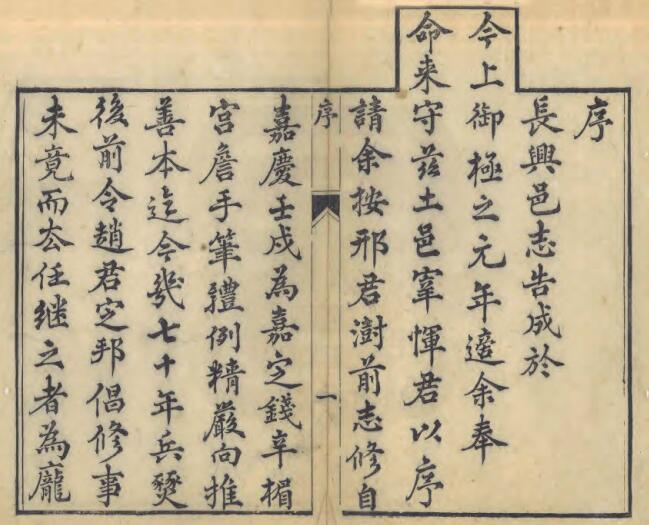 序
長興邑志告成於
今上御極之元年適余奉
命来守茲土邑宰惲君以序
請余按邢君澍前志修自
序
一
嘉慶壬戌為嘉定錢辛楣
宮詹手筆體例精嚴向推
善本迄今幾七十年兵燹
後前令趙君定邦倡修事
未竟而去任継之者為龐